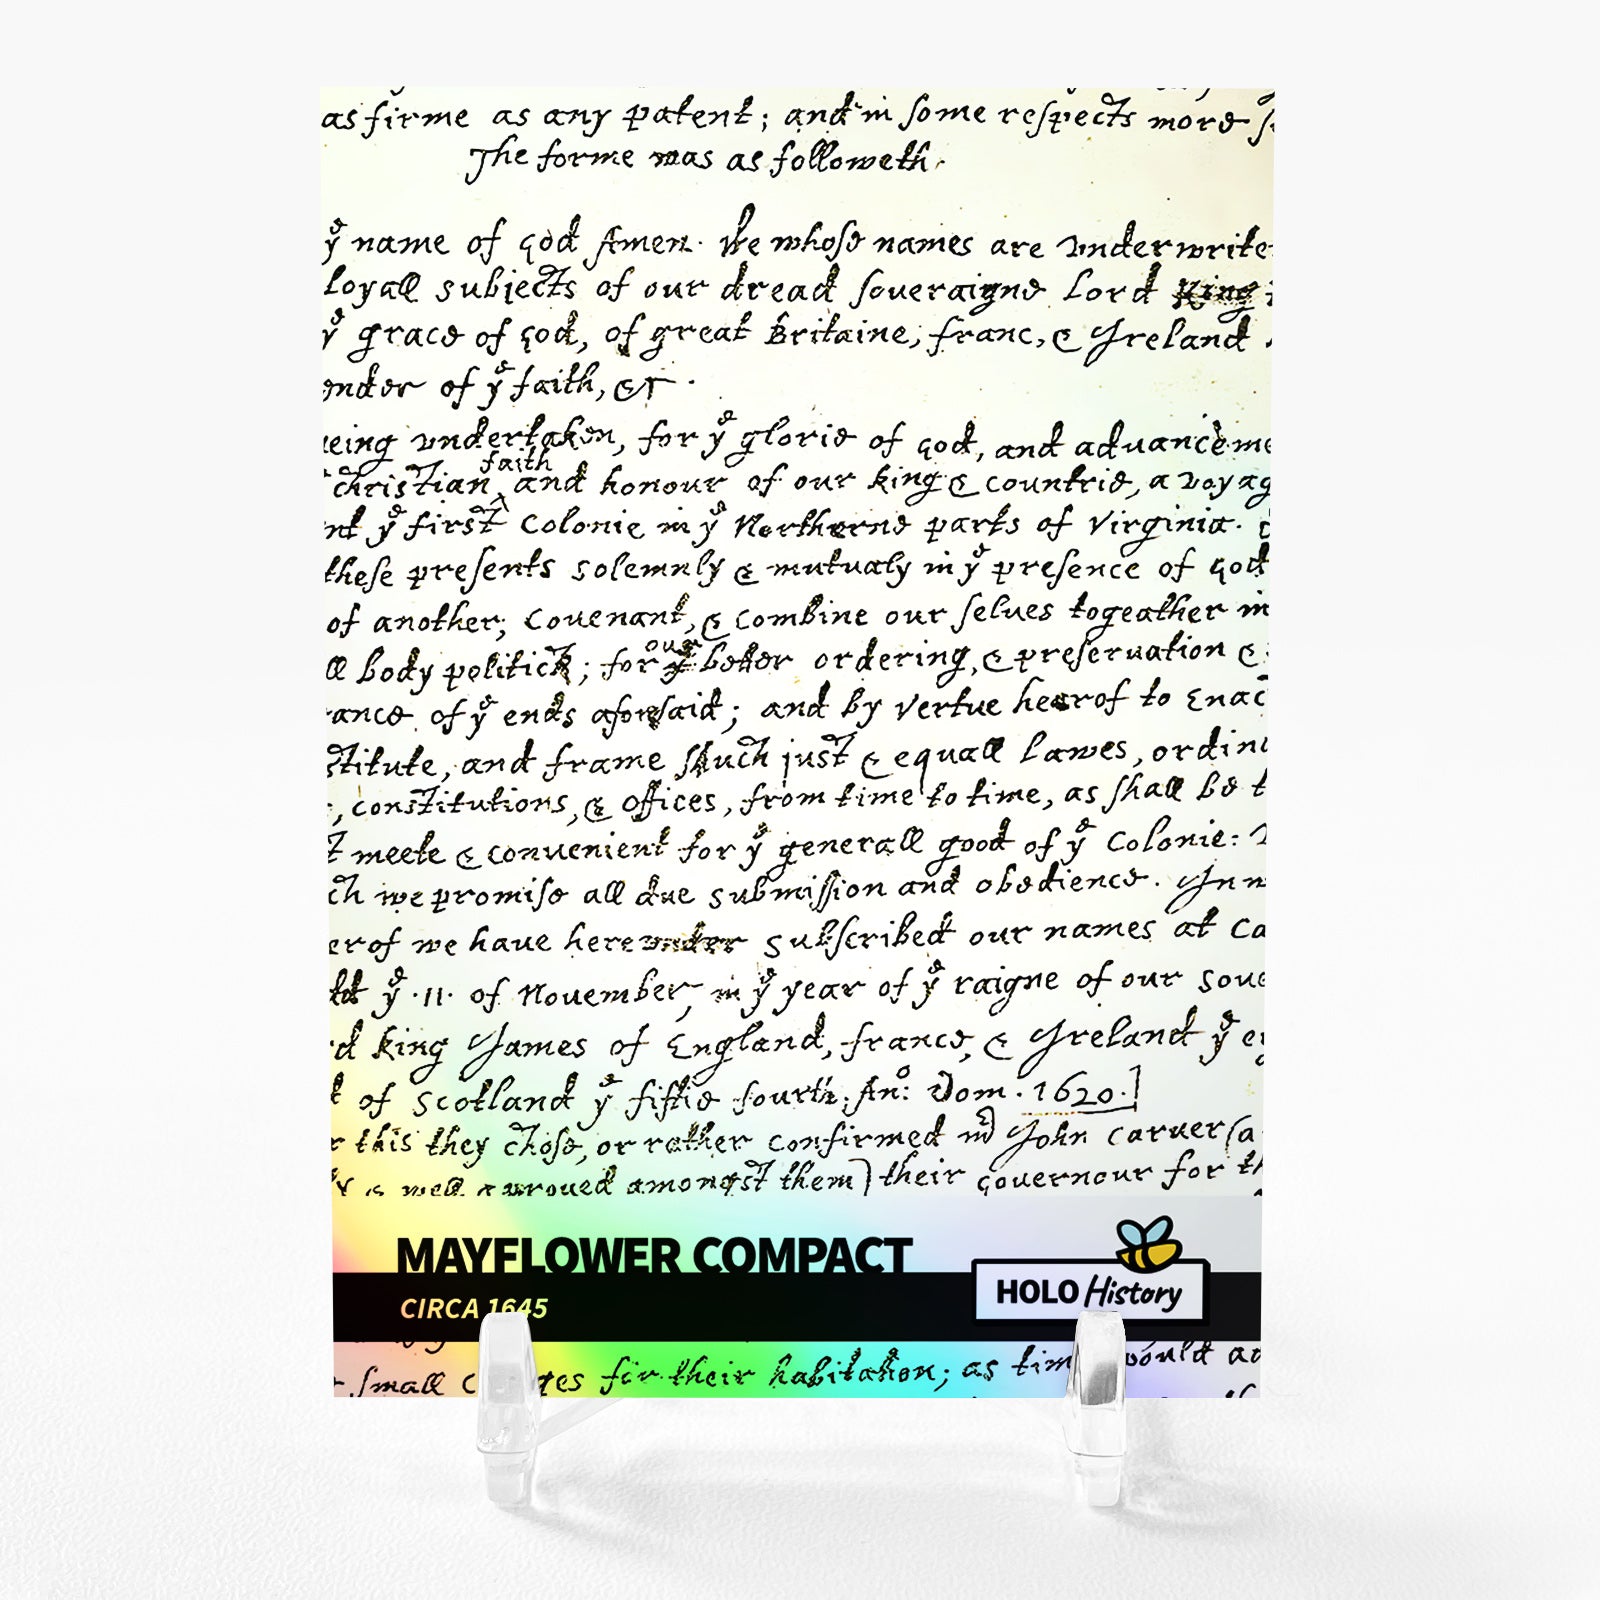 as firme as any patent; and in some respects more
The forme was as followeth.
yͤ name of god Amen. We whose names are underwrite
loyall subjects of our dread soveraigne Lord King
yͤ grace of god, of great Britaine, franc, & Ireland
ender of yͤ faith, &c.
eing undertaken, for yͤ glorie of god, and advanceme
faith
christian ^ and honour of our king & countrie, a voyag
nt yͤ first Colonie in yͤ Northerne parts of Virginia.
these presents solemnly & mutualy in yͤ presence of god
of another; covenant, & combine our selves togeather in
our
ll body politick; for yͤ better ordering, & preservation &
rance of yͤ ends aforesaid; and by vertue hearof to Enac
stitute, and frame shuch just & equall lawes, ordin
, constitutions, & offices, from time to time, as shall be t
t meete & convenient for yͤ generall good of yͤ Colonie:
ch we promise all due submission and obedience. In
erof we have hereunder subscribed our names at Ca
yͤ .11. of November, in yͤ year of yͤ raigne of our sove
d king James of England, france, & Ireland yͤ
of Scotland yͤ fiftie fourth. Anͦ: Dom. 1620.]
this they chose, or rather confirmed mͬ John Carver (a
well aproved amongst them) their governour for th
MAYFLOWER COMPACT
CIRCA 1645
HOLO History
small for their habitation; as time would ad